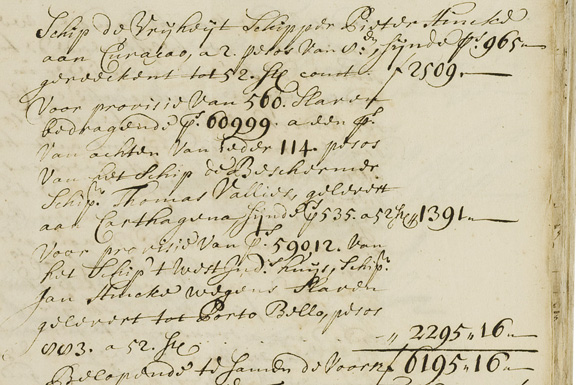 Schip de Vrijheijt Schipper Pieter Stincke
aan Curacao, a 2. pesos van 8.en zijnde ps. 965„—
gereeckent tot 52. st. cour.t f 2509„—
Voor provisie van 560. Slaven
bedragende ps. 60999. a een ps.
van achten van ieder 114. pesos
van het Schip de Beschermer
Schipr. Thomas Vallies, gelevert
aan Carthagena zijnde ps 535. a 52 st. „ 1391„—
Voor provisie van ps. 59012. van
het Schip 't West Indis huijs, Schipr.
Jan Stincke wegens Slaven
gelevert tot Porto Bello, pesos
883. a 52. st. „ 2295„16„—
Belopende te samen de Voorn. f 6195„16„—